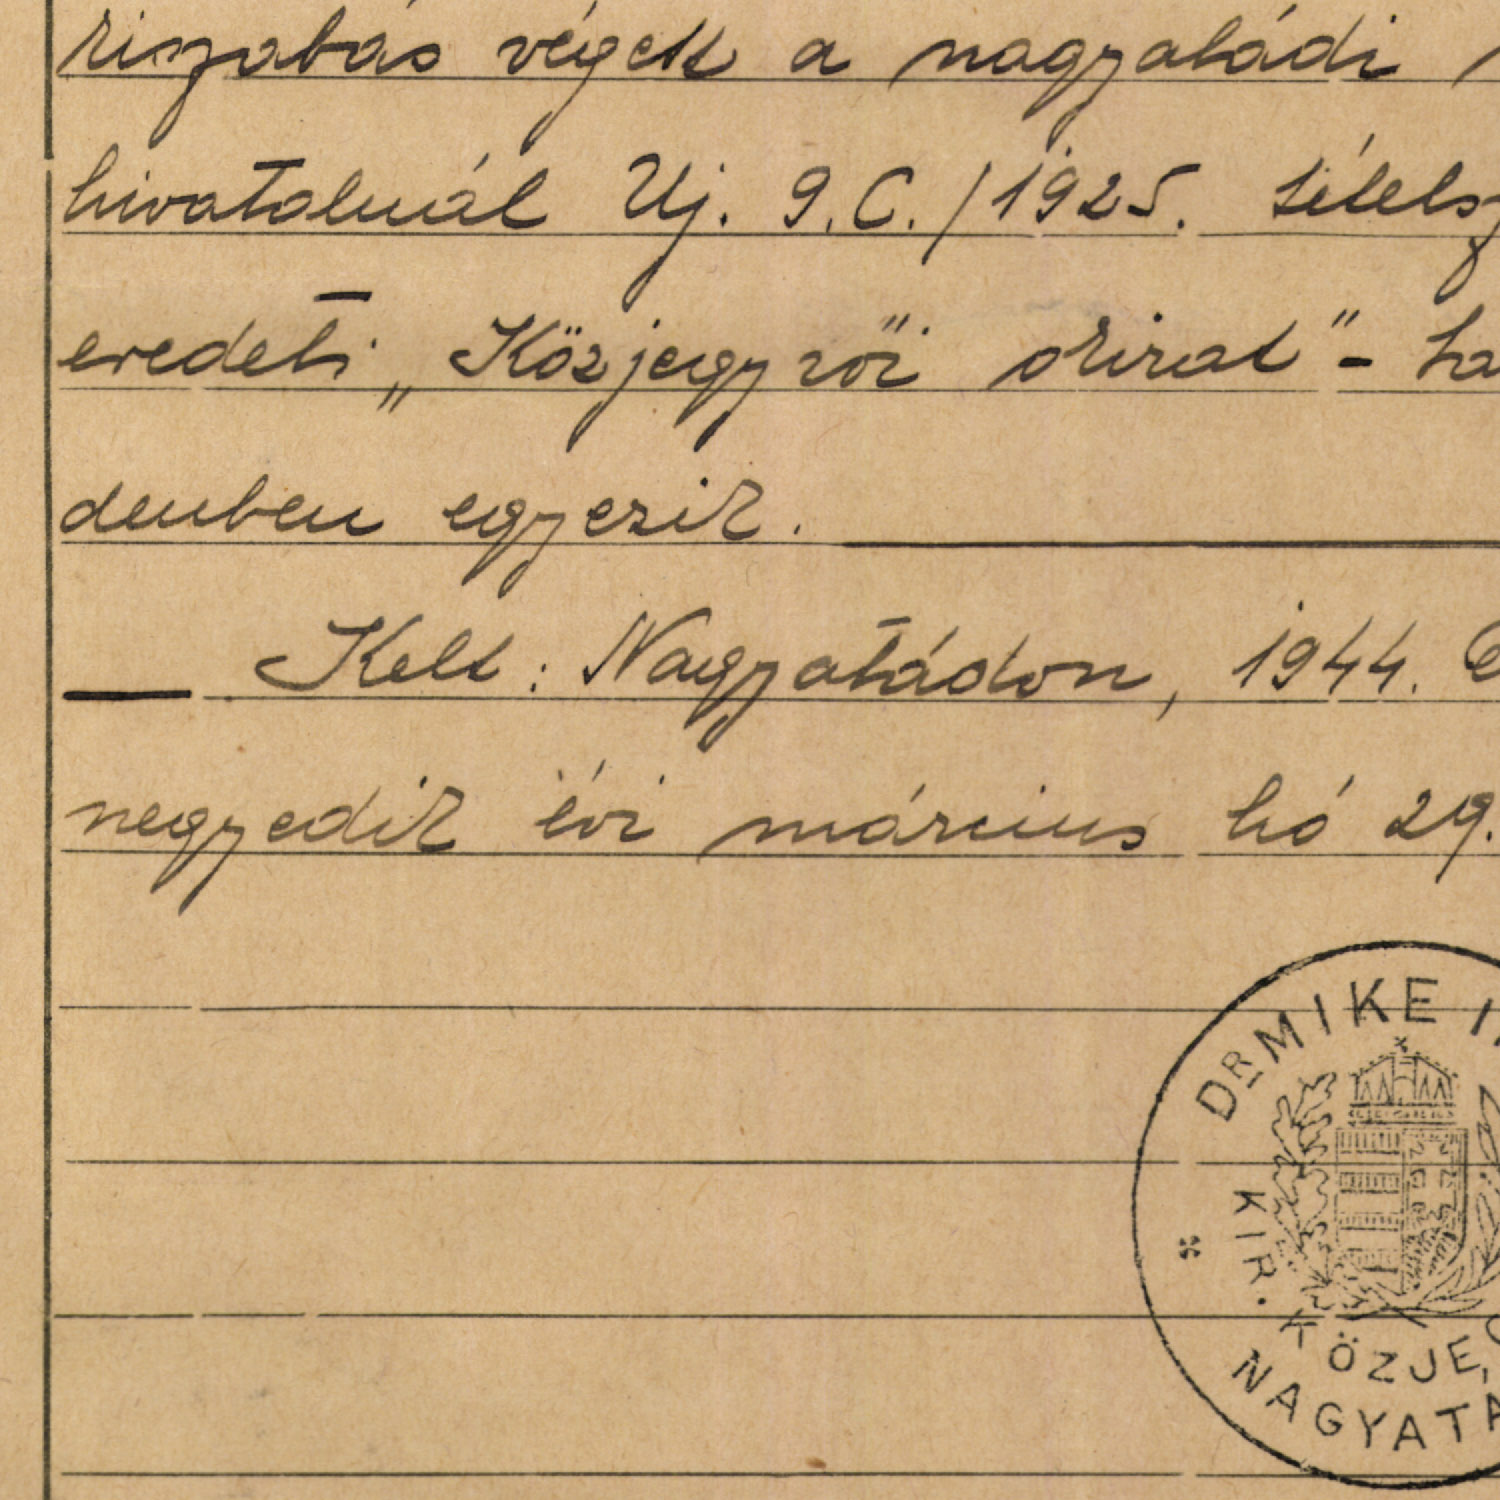 kiszabás végett a nagyatádi
hivatalnál Uj. 9.C./1925. tételsz
eredeti „Közjegyzői okirat"- ta
denben egyezik.
Kelt: Nagyatádon, 1944. E
negyedik évi március hó 29.
DR MIKE I
KIR. KÖZJEG
NAGYATÁ